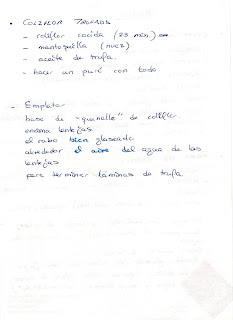 • COLIFLOR TRUFADA
- coliflor cocida (25 min)
- mantequilla (nuez)
- aceite de trufa.
- hacer un puré con todo
- Emplatar
base de "quenelle" de coliflor
encima lentejas
el rabo bien glaseado
alrededor el aire del agua de las
lentejas
para terminar láminas de trufa.